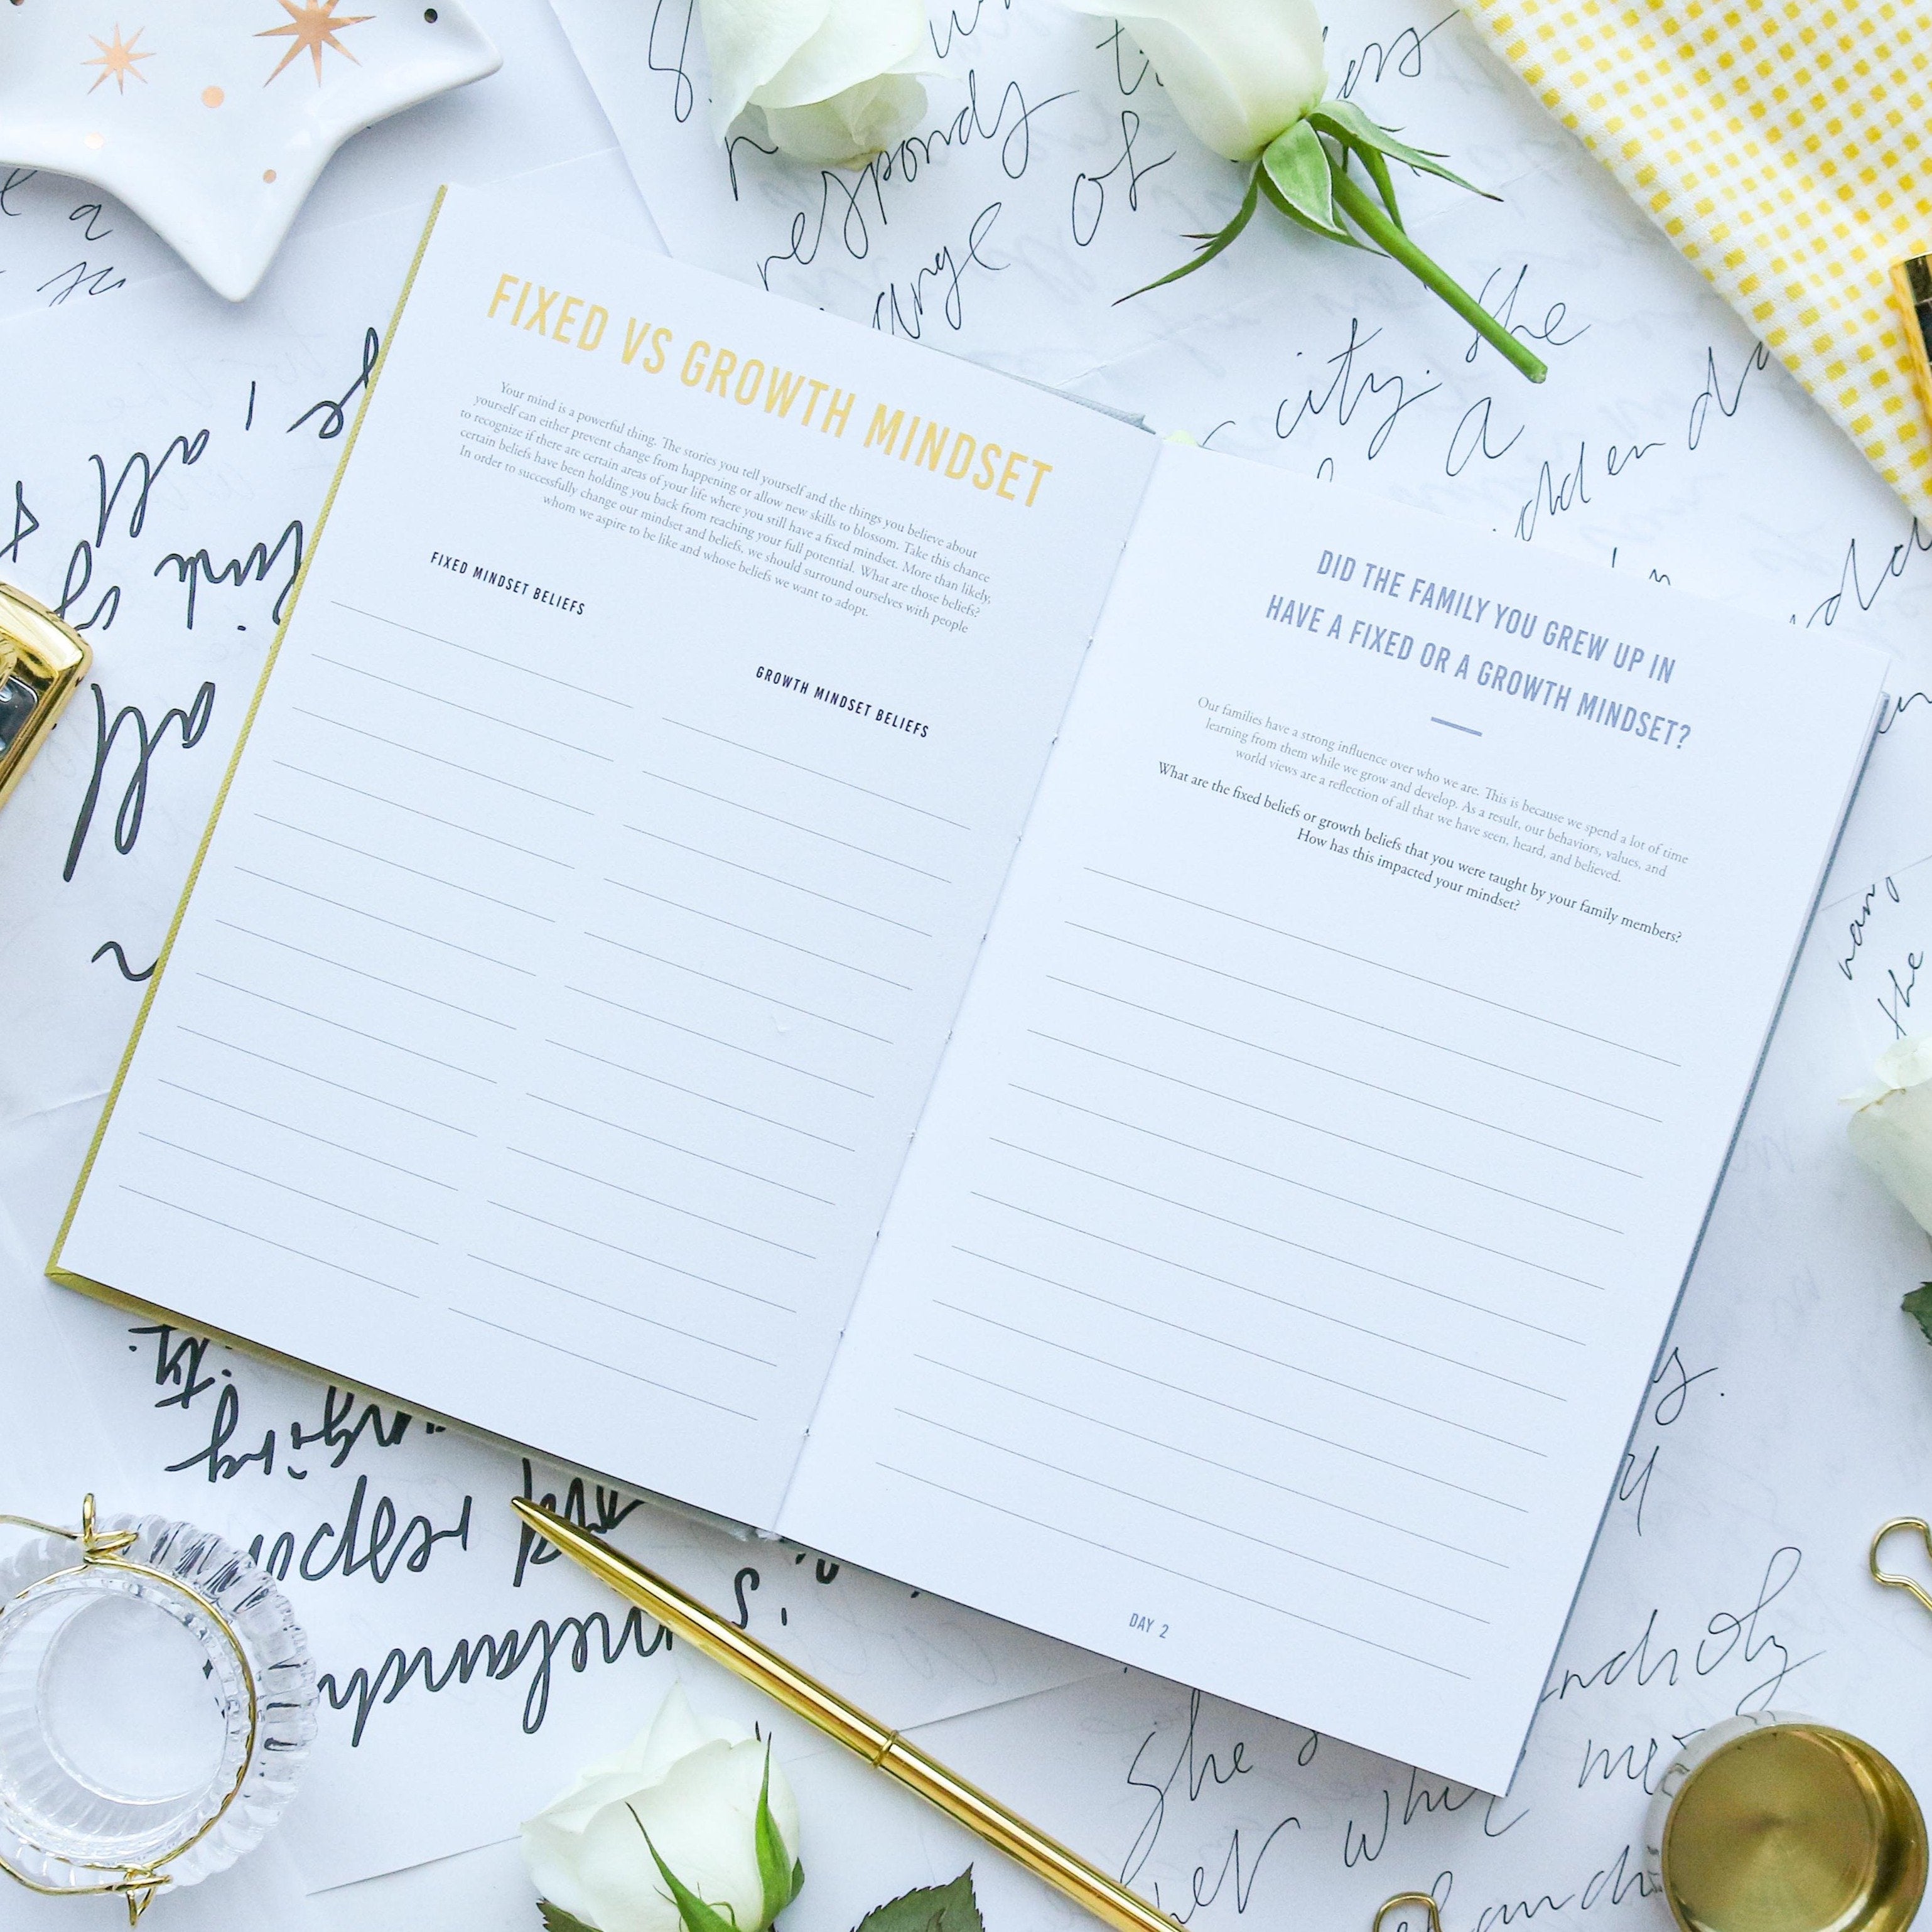 FIXED VS GROWTH MINDSET
Your mind is a powerful thing. The stories you tell yourself and the things you believe about
yourself can either prevent change from happening or allow new skills to blossom. Take this chance
to recognize if there are certain areas of your life where you still have a fixed mindset. More than likely,
certain beliefs have been holding you back from reaching your full potential. What are those beliefs?
In order to successfully change our mindset and beliefs, we should surround ourselves with people
whom we aspire to be like and whose beliefs we want to adopt.
FIXED MINDSET BELIEFS
GROWTH MINDSET BELIEFS
DID THE FAMILY YOU GREW UP IN
HAVE A FIXED OR A GROWTH MINDSET?
Our families have a strong influence over who we are. This is because we spend a lot of time
learning from them while we grow and develop. As a result, our behaviors, values, and
world views are a reflection of all that we have seen, heard, and believed.
What are the fixed beliefs or growth beliefs that you were taught by your family members?
How has this impacted your mindset?
DAY 2
responds
of
city. She
a
all
all
the
She